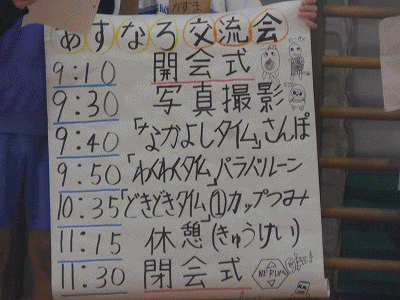 あすなろ交流会
9:10 開会式
9:30 写真撮影
9:40 「なかよしタイム」さんぽ
9:50 「わくわくタイム」パラバルーン
10:35 「どきどきタイム」①カップつみ
11:15 休憩(きゅうけい)
11:30 閉会式